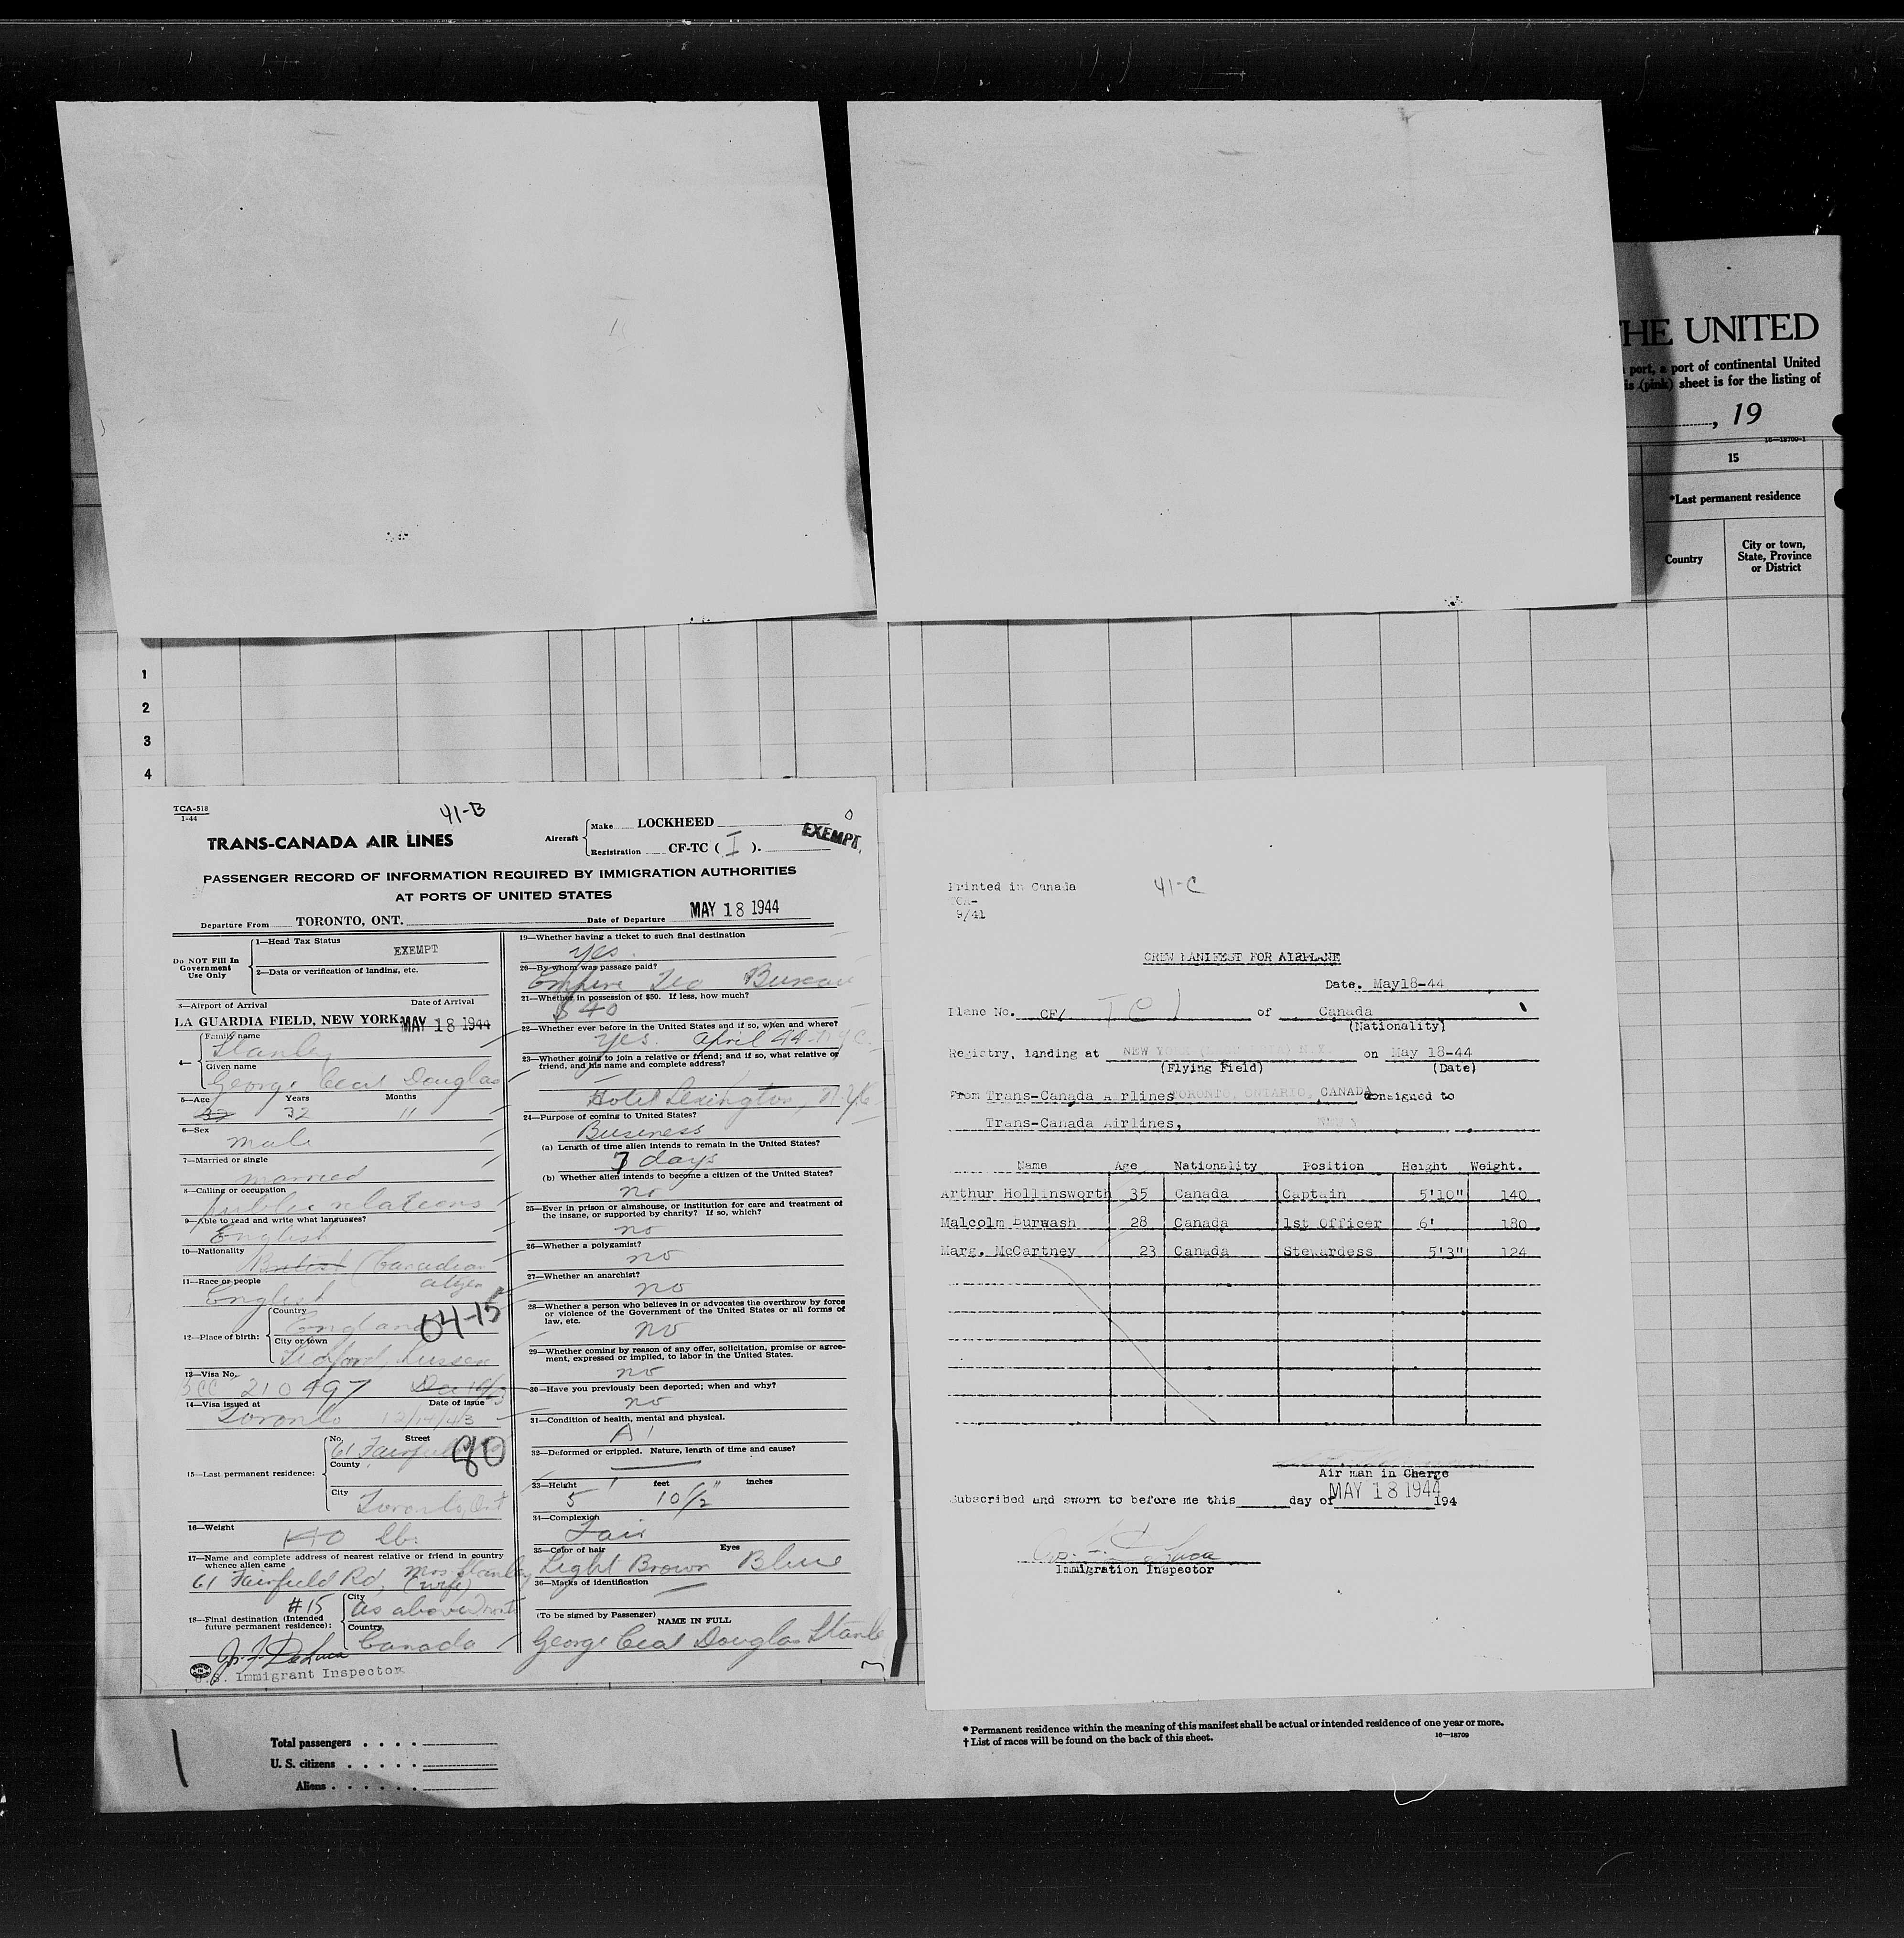 THE UNITED
port, a port of continental United
is (pink) sheet is for the listing of
, 19
16—18709-1
15
*Last permanent residence
Country
City or town, State, Province or District
1
2
3
4
TCA-518
1-44
41-B
TRANS-CANADA AIR LINES
Aircraft
Make LOCKHEED
Registration CF-TC ( I ).
EXEMPT.
PASSENGER RECORD OF INFORMATION REQUIRED BY IMMIGRATION AUTHORITIES
AT PORTS OF UNITED STATES
Departure From TORONTO, ONT. Date of Departure MAY 18 1944
Do NOT Fill In Government Use Only
1—Head Tax Status EXEMPT
2—Data or verification of landing, etc.
3—Airport of Arrival Date of Arrival
LA GUARDIA FIELD, NEW YORK MAY 18 1944
4—
Family name
Stanley
Given name
George Cecil Douglas
5—Age Years Months
32 11
6—Sex
male
7—Married or single
married
8—Calling or occupation
public relations
9—Able to read and write what languages?
English
10—Nationality
British (Canadian
citizen
11—Race or people
English
12—Place of birth:
Country
England
04-15
City or town
Sussex
13—Visa No.
210497
14—Visa issued at Date of issue
Toronto 12/14/43
15—Last permanent residence:
No. Street
61 Fairfield
80
County
City
Toronto, Ont
16—Weight
140 lb.
17—Name and complete address of nearest relative or friend in country
whence alien came
Mrs Stanley
61 Fairfield Rd, (wife)
#15
18—Final destination (Intended future permanent residence):
City
as above
Country
Canada
U.S. Immigrant Inspector
19—Whether having a ticket to such final destination
yes.
20—By whom was passage paid?
Empire Tea Bureau
21—Whether in possession of $50. If less, how much?
$40
22—Whether ever before in the United States and if so, when and where?
yes. April 44 N.Y.C.
23—Whether going to join a relative or friend; and if so, what relative or
friend, and his name and complete address?
Hotel Lexington, N.Y.C.
24—Purpose of coming to United States?
Business
(a) Length of time alien intends to remain in the United States?
7 days
(b) Whether alien intends to become a citizen of the United States?
no
25—Ever in prison or almshouse, or institution for care and treatment of
the insane, or supported by charity? If so, which?
no
26—Whether a polygamist?
no
27—Whether an anarchist?
no
28—Whether a person who believes in or advocates the overthrow by force
or violence of the Government of the United States or all forms of
law, etc.
no
29—Whether coming by reason of any offer, solicitation, promise or agree-
ment, expressed or implied, to labor in the United States.
no
30—Have you previously been deported; when and why?
no
31—Condition of health, mental and physical.
A1
32—Deformed or crippled. Nature, length of time and cause?
33—Height feet inches
5' 10 1/2"
34—Complexion
Fair
35—Color of hair Eyes
Light Brown Blue
36—Marks of identification
(To be signed by Passenger) NAME IN FULL
George Cecil Douglas Stanley
Printed in Canada
TCA-
9/41
41-C
CREW MANIFEST FOR AIRPLANE
Date. May18-44
Plane No. CF/ TCI of Canada
(Nationality)
Registry, landing at NEW YORK on May 18-44
(Flying Field) (Date)
From Trans-Canada Airlines TORONTO, ONTARIO, CANADA consigned to
Trans-Canada Airlines,
Name Age Nationality Position Height Weight.
Arthur Hollinsworth 35 Canada Captain 5'10" 140
Malcolm Burwash 28 Canada 1st Officer 6' 180
Marg. McCartney 23 Canada Stewardess 5'3" 124
Air man in Charge
Subscribed and sworn to before me this day of MAY 18 1944 194
Immigration Inspector
Total passengers . . . .
U. S. citizens . . . . .
Aliens . . . . . .
* Permanent residence within the meaning of this manifest shall be actual or intended residence of one year or more.
† List of races will be found on the back of this sheet.
16—18709